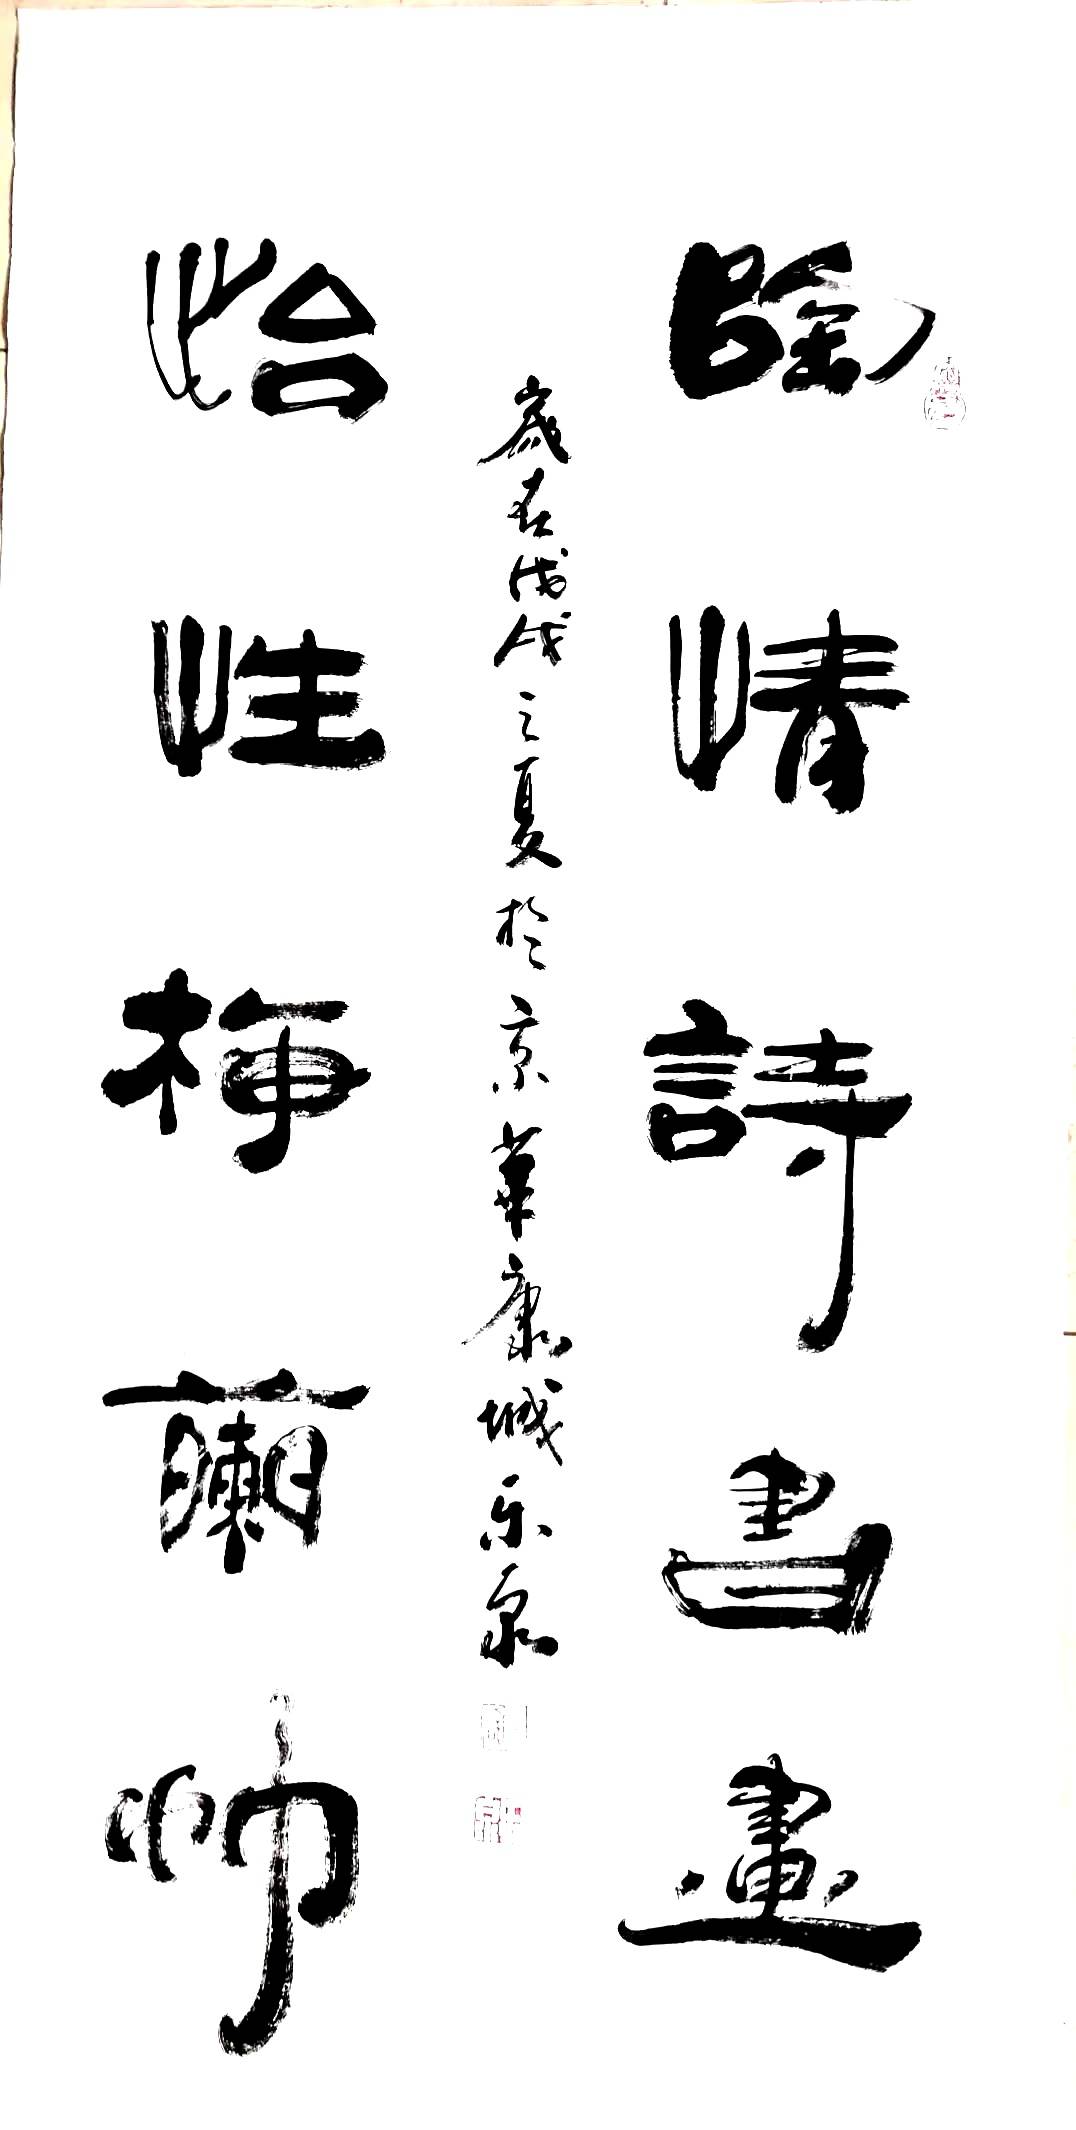 陶情詩書畫
歲在戊戌之夏於京華康城乐泉
怡性梅蘭竹